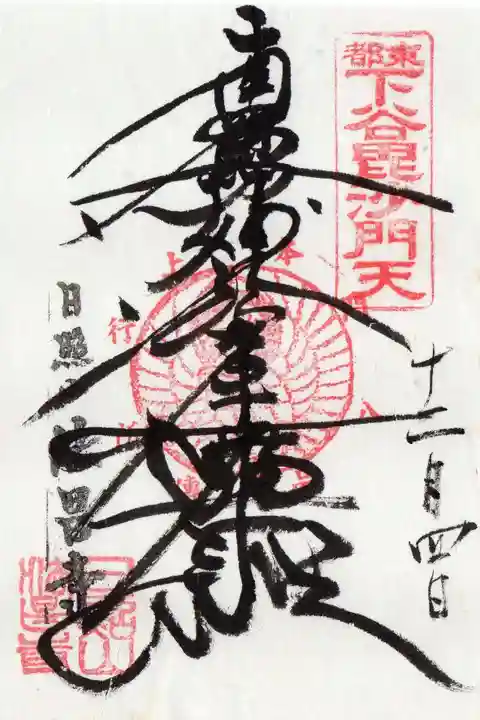 東都
下谷毘沙門天
十二月四日
南無妙法蓮華経
日照山法昌寺